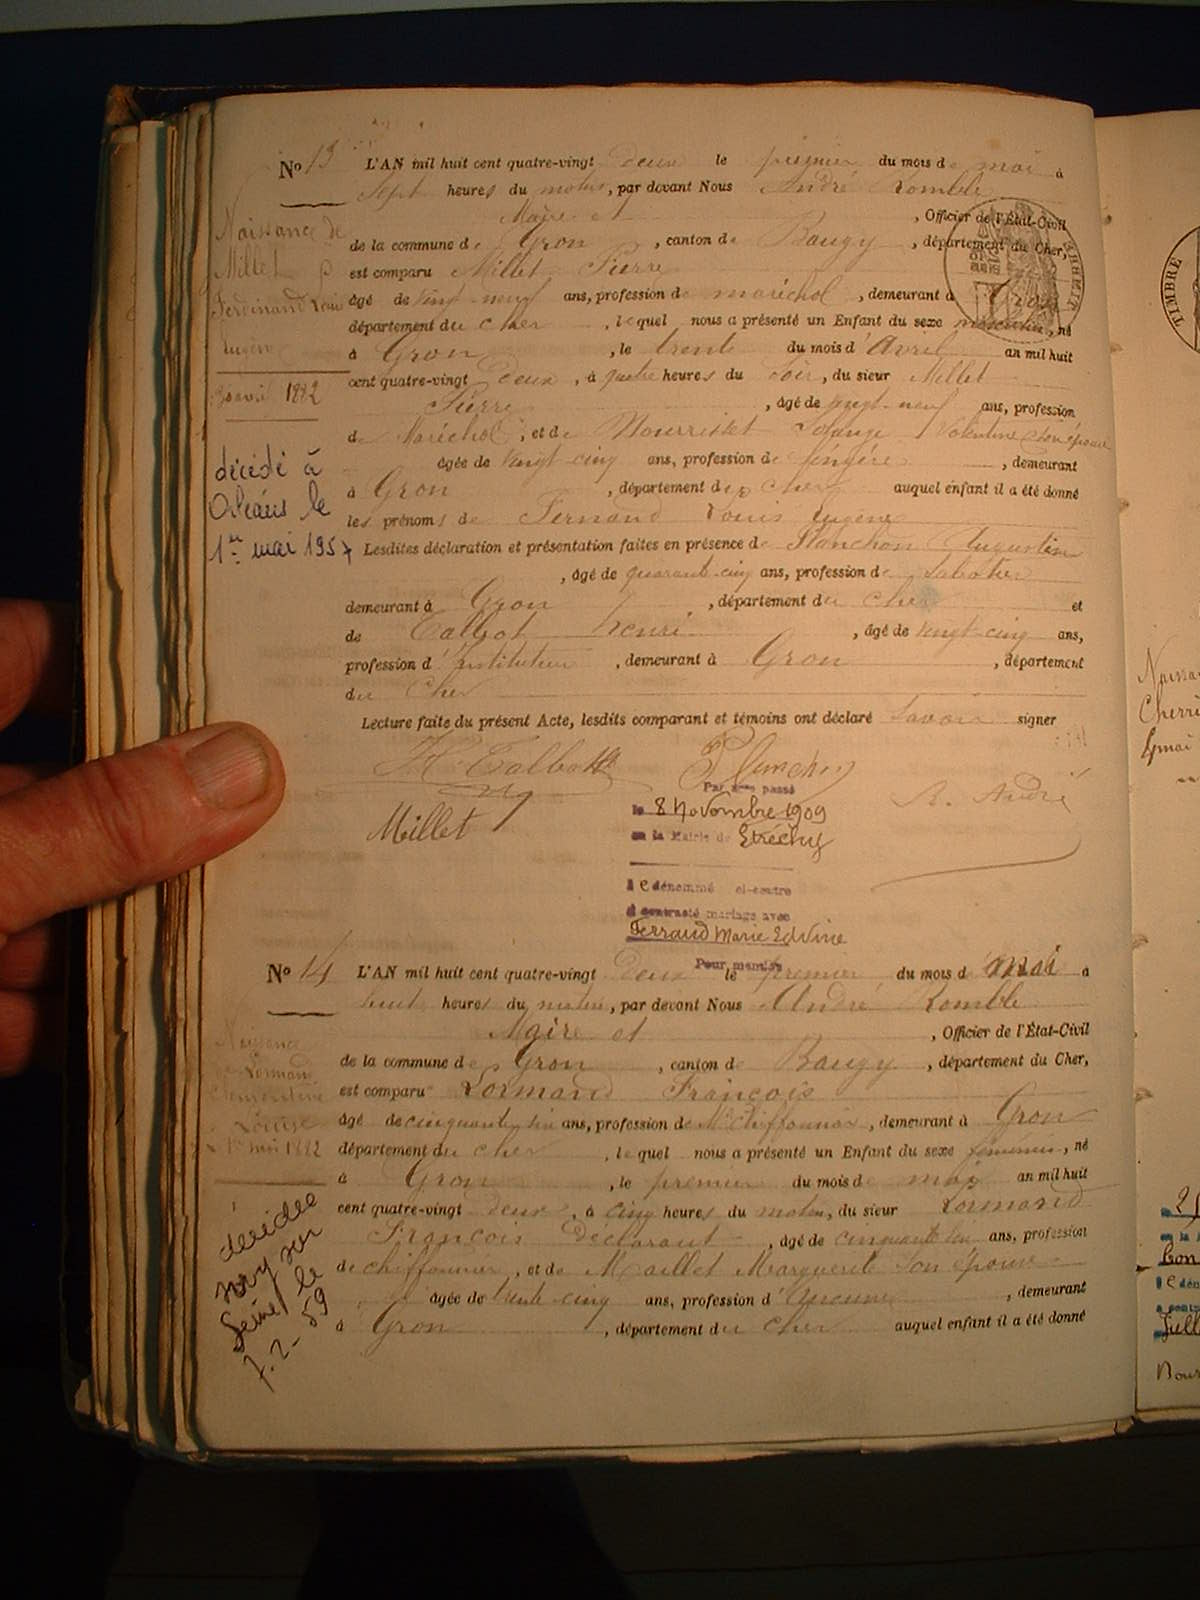 No 13 L'AN mil huit cent quatre-vingt deux le premier du mois de mai à
sept heures du matin, par devant Nous André Romble
Maire et , Officier de l'État-Civil
de la commune de Gron , canton de Baugy , département du Cher,
est comparu Millet Pierre
âgé de vingt-neuf ans, profession de maréchal , demeurant à Gron
département du Cher , lequel nous a présenté un Enfant du sexe masculin, né
à Gron , le trente du mois d'Avril an mil huit
cent quatre-vingt deux , à quatre heures du soir, du sieur Millet
Pierre , âgé de vingt-neuf ans, profession
de Maréchal , et de Nourrisset Solange Valentine son épouse
âgée de vingt-cinq ans, profession de lingère , demeurant
à Gron , département du Cher auquel enfant il a été donné
les prénoms de Fernand Louis Eugène
Lesdites déclaration et présentation faites en présence de Planchon Augustin
, âgé de quarante-cinq ans, profession de sabotier
demeurant à Gron , département du Cher et
de Talbot henri , âgé de vingt-cinq ans,
profession d'Instituteur , demeurant à Gron , département
du Cher
Lecture faite du présent Acte, lesdits comparant et témoins ont déclaré savoir signer
Naissance de
Millet
Ferdinand Louis
Eugène
30 avril 1882
décédé à
Orléans le
1er mai 1957
H. Talbot
Planchon
R. André
Millet
Par acte passé
le 8 Novembre 1909
en la Mairie de Etréchy
le dénommé ci-contre
a contracté mariage avec
Ferraud Marie Edwine
Pour mention
No 14 L'AN mil huit cent quatre-vingt deux le premier du mois de mai à
huit heures du matin, par devant Nous André Romble
Maire et , Officier de l'État-Civil
de la commune de Gron , canton de Baugy , département du Cher,
est comparu Lormand François
âgé de cinquante six ans, profession de Md chiffonnier , demeurant à Gron
département du Cher , lequel nous a présenté un Enfant du sexe féminin , né
à Gron , le premier du mois de mai an mil huit
cent quatre-vingt deux , à cinq heures du matin, du sieur Lormand
François Déclarant , âgé de cinquante six ans, profession
de chiffonnier , et de Maillet Marguerite son épouse
âgée de trente-cinq ans, profession d'aucune , demeurant
à Gron , département du Cher auquel enfant il a été donné
Naissance
de Lormand
Clémentine
Louise
1er mai 1882
décédée
Ivry sur
Seine le
7-2-59
TIMBRE
Cherri